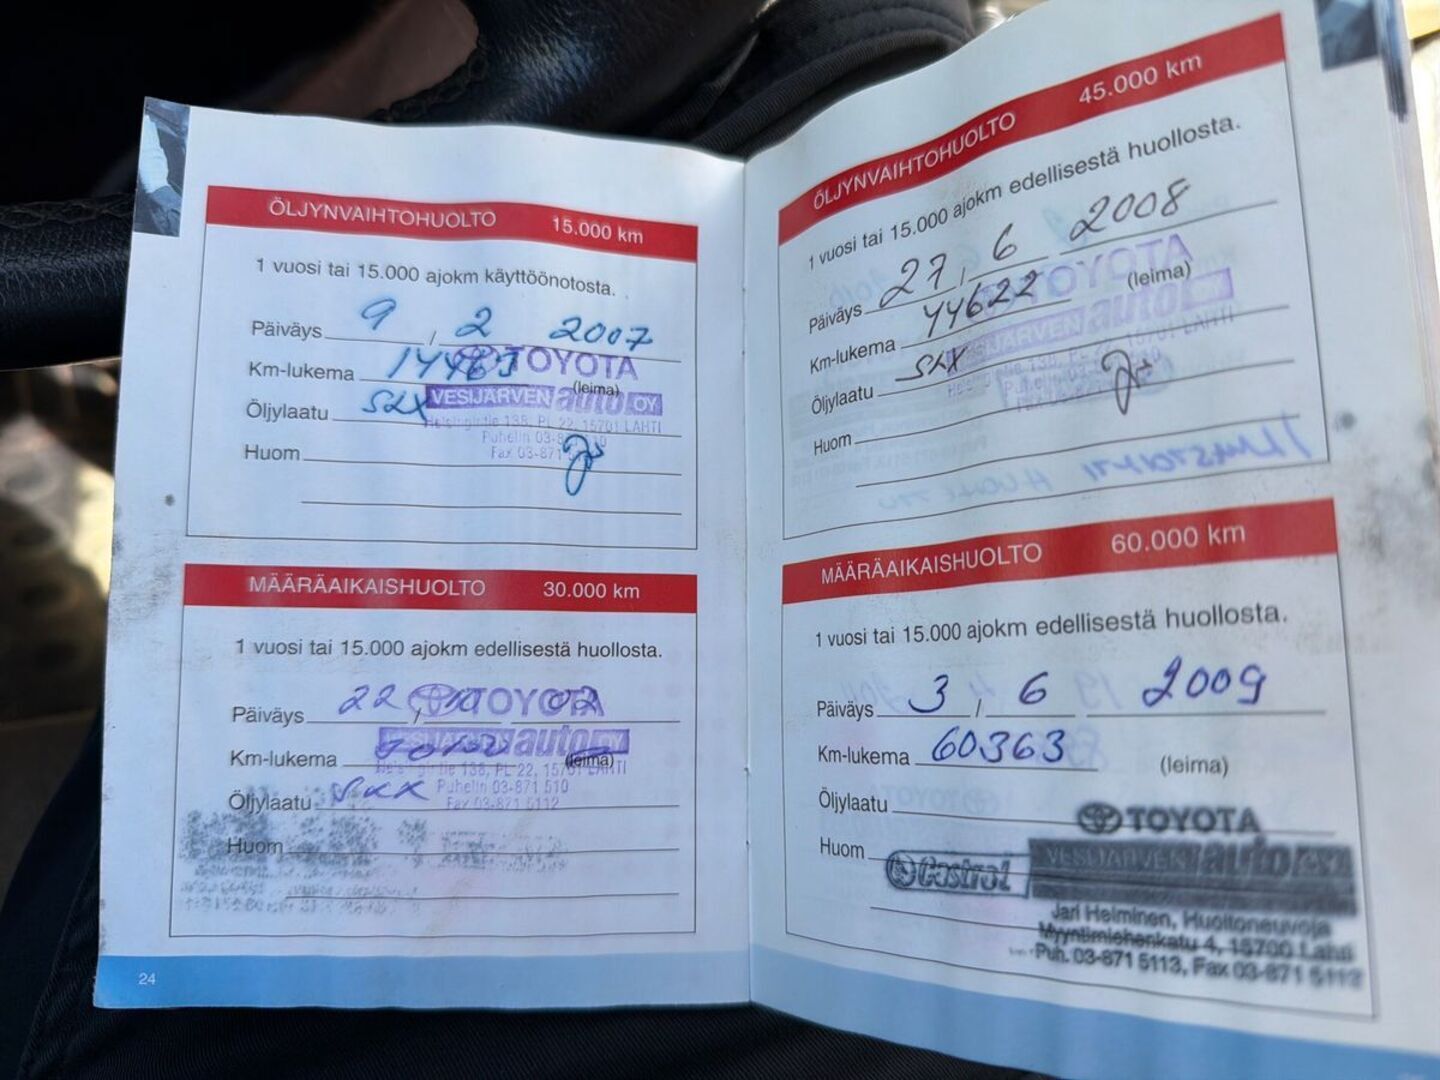 ÖLJYNVAIHTOHUOLTO 15.000 km
1 vuosi tai 15.000 ajokm käyttöönotosta.
Päiväys 9 , 2 2007
TOYOTA
Km-lukema
(leima)
VESIJÄRVEN auto OY
Öljylaatu SLX
Helsingintie 138, PL 22, 15701 LAHTI
Puhelin
Huom
MÄÄRÄAIKAISHUOLTO 30.000 km
1 vuosi tai 15.000 ajokm edellisestä huollosta.
Päiväys 22
TOYOTA
Km-lukema
(leima)
VESIJÄRVEN auto OY
Helsingintie 138, PL 22, 15701 LAHTI
Öljylaatu SLX
Puhelin 03-871 510
Fax 03-871 5112
Huom
24
ÖLJYNVAIHTOHUOLTO 45.000 km
1 vuosi tai 15.000 ajokm edellisestä huollosta.
Päiväys 27 , 6 2008
TOYOTA
Km-lukema 44622
(leima)
VESIJÄRVEN auto
Öljylaatu SLX
Huom
MÄÄRÄAIKAISHUOLTO 60.000 km
1 vuosi tai 15.000 ajokm edellisestä huollosta.
Päiväys 3 , 6 2009
Km-lukema 60363
(leima)
Öljylaatu
TOYOTA
Huom
Castrol
VESIJÄRVEN auto
Jari Helminen, Huoltoneuvoja
Myyntimiehenkatu 4, 15700 Lahti
Puh. 03-871 5113, Fax 03-871 5112